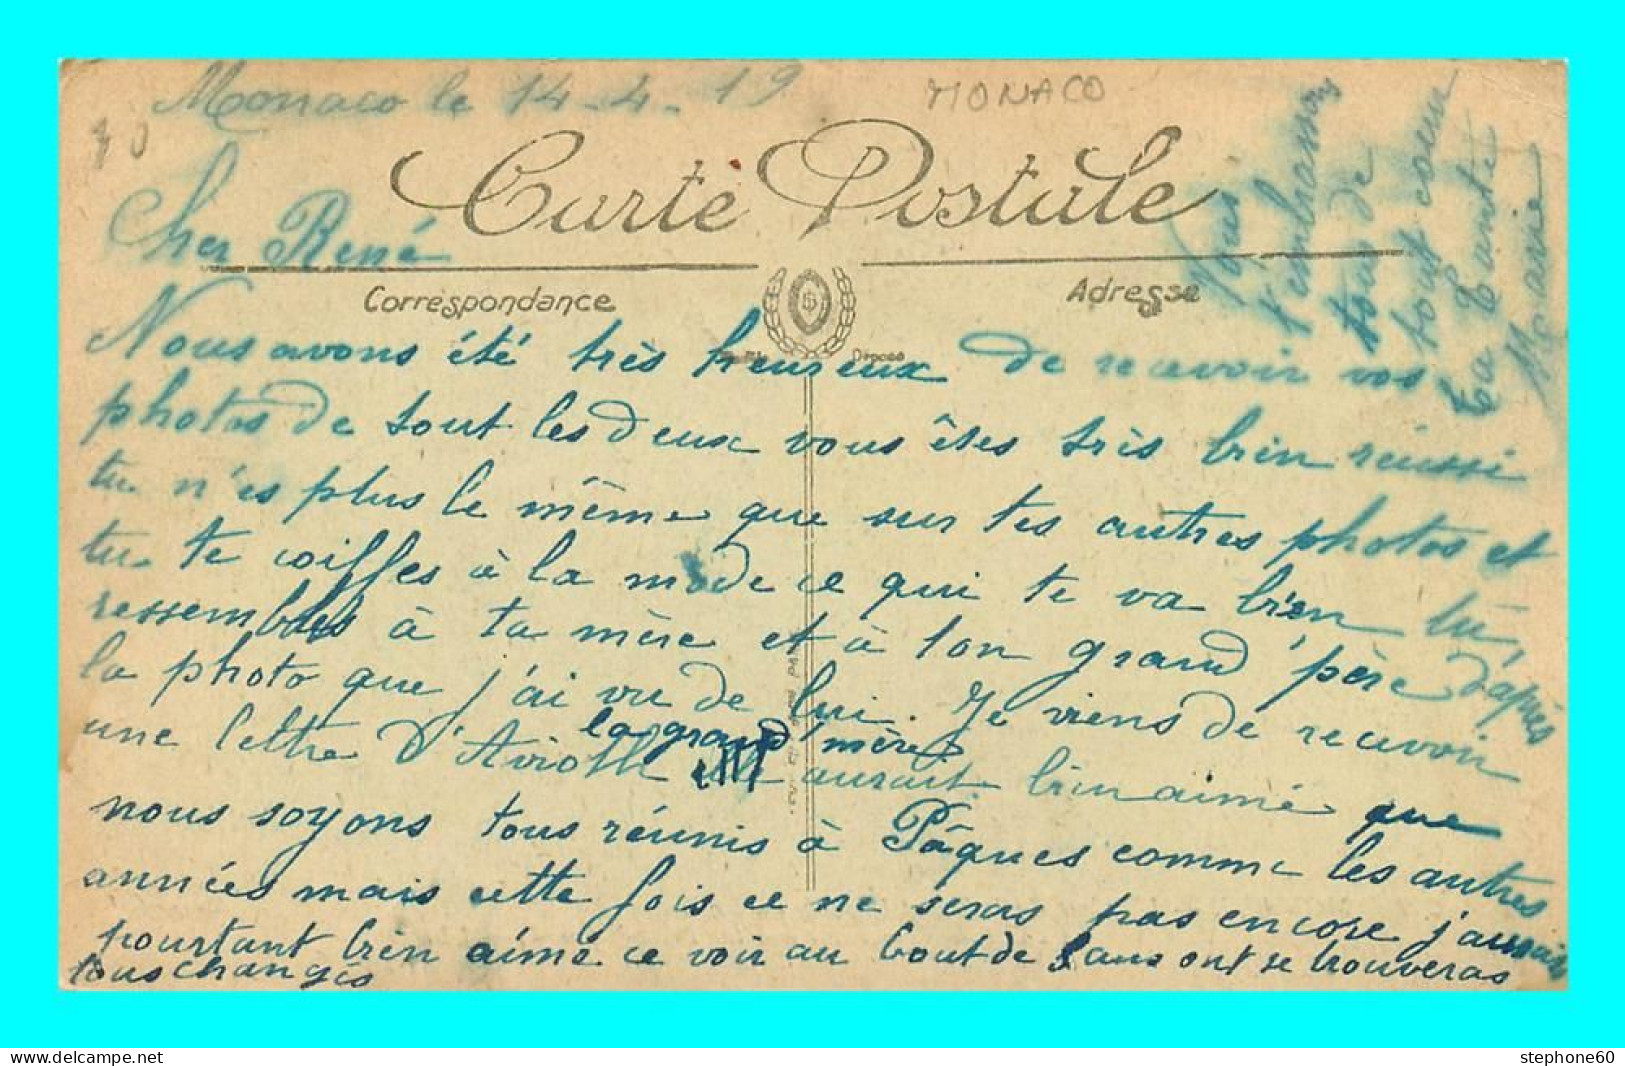 Monaco le 14-4-19
MONACO
Carte Postale
Cher René
Correspondance
Adresse
Nous avons été très heureux de recevoir vos
photos de tout les deux vous êtes très bien réussi
tu n'es plus le même que sur tes autres photos et
tu te coiffes à la mode ce qui te va bien tu
ressembles à ta mère et à ton grand'père d'après
la photo que j'ai vu de lui. Je viens de recevoir
une lettre d' la grand'mère aurait bien aimé que
nous soyons tous réunis à Pâques comme les autres
années mais cette fois ce ne seras pas encore j'aurais
pourtant bien aimé ce voir au bout de 5 ans ont se trouveras
tous changés
Nous
t'embrassons
tous de
tout cœur
ta Tante
Marie
stephone60